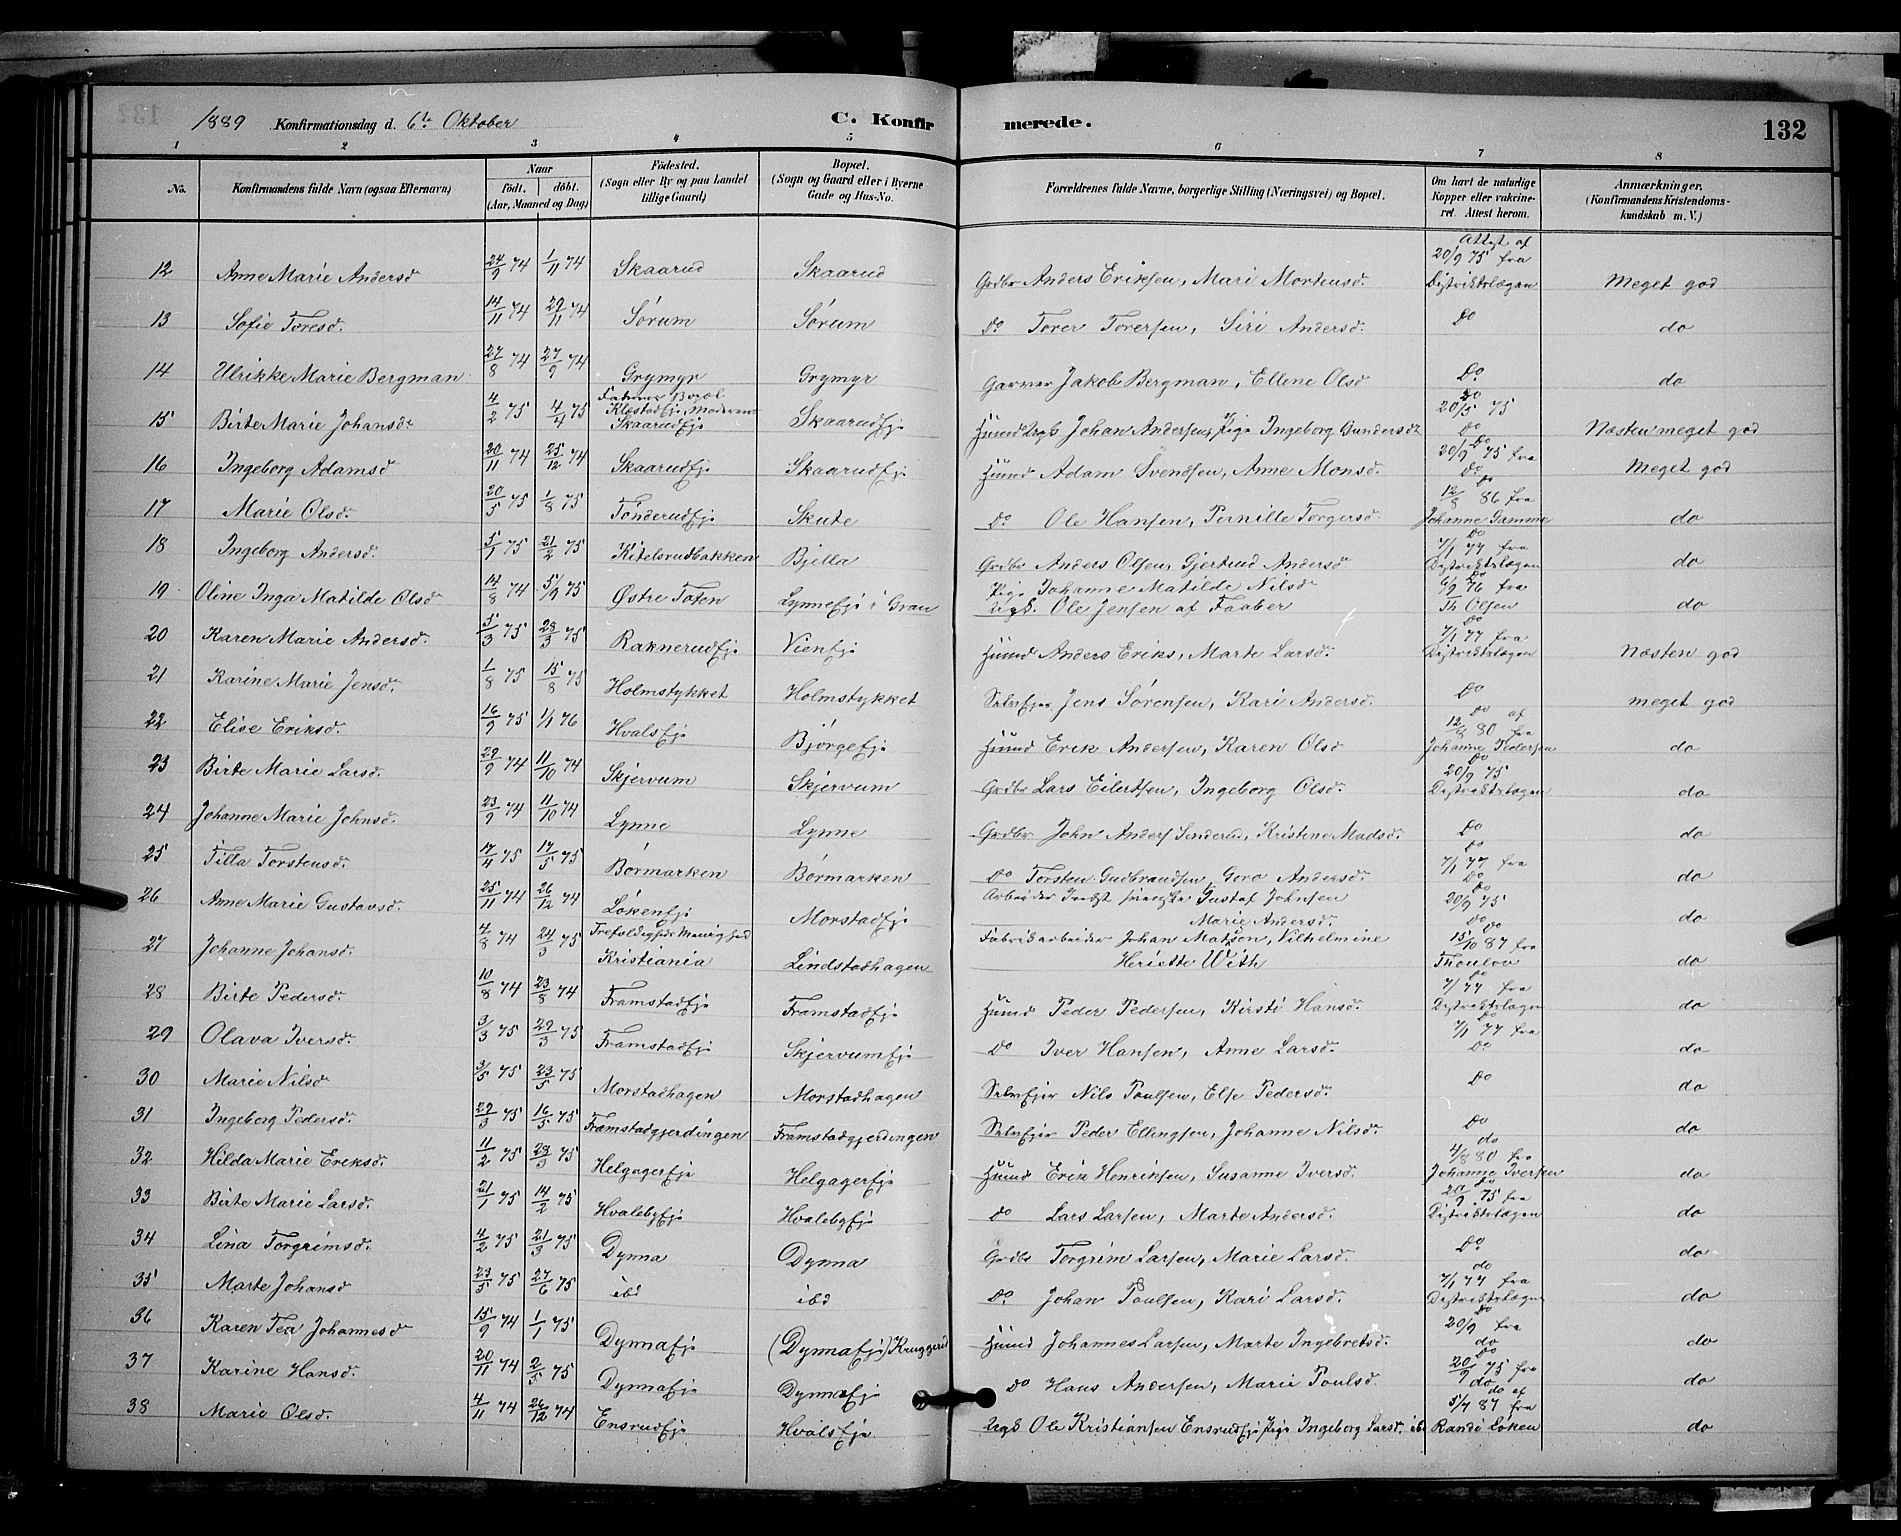 1889 Konfirmationsdag d. 6te Oktober C. Konfirmerede. 132
1 2 3 4 5 6 7 8
No. Konfirmandens fulde Navn (ogsaa Efternavn) Naar födt. döbt. (Aar, Maaned og Dag) Födested. (Sogn eller By og paa Landet tillige Gaard) Bopæl. (Sogn og Gaard eller i Byerne Gade og Hus-No. Forældrenes fulde Navne, borgerlige Stilling (Næringsvei) og Bopæl. Om havt de naturlige Kopper eller vakcineret. Attest herom. Anmærkninger. (Konfirmandens Kristendomskundskab m. V.)
12 Anne Marie Andersd 24/9 74 1/11 74 Skaarud Skaarud Grdbr Anders Eriksen, Mari Mortensd. Attest af 20/9 75 fra Distriktslægen Meget god
13 Sofie Toresd. 14/11 74 29/11 74 Sörum Sörum Do Torer Torersen, Siri Andersd. Do do
14 Ulrikke Marie Bergman 27/8 74 27/9 74 Grymyr Grymyr Garver Jakob Bergman, Ellene Olsd Do do
15 Birte Marie Johansd. 4/2 75 4/4 75 Faderens Bopæl Klæstadeje, Moderens Skaarudeje Skaarudeje Husmd Ungk Johan Andersen, Pige Ingeborg Gundersd Do 20/5 75 Do Næsten meget god
16 Ingeborg Adamsd 20/11 74 25/12 74 Skaarudeje Skaarudeje Husmd Adam Svendsen, Anne Monsd. Do 20/9 75 fra Do Meget god
17 Marie Olsd. 20/5 75 1/8 75 Tönderudeje Skute Do Ole Hansen, Pernille Torgersd. Do 12/8 86 fra Johanne Gamme do
18 Ingeborg Andersd. 5/1 75 21/2 75 Kitelsrudbakken Bjella Grdbr Anders Olsen, Gjertrud Andersd Do 7/1 77 fra Distriktslægen do
19 Oline Inga Matilde Olsd 14/8 74 5/9 75 Østre Toten Lynneeje i Gran Pige Johanne Matilde Nilsd Ungk. Ole Jensen af Faaber Do 6/9 76 fra Th Olsen do
20 Karen Marie Andersd. 5/3 75 28/3 75 Raknerudeje Vieneje Husmd Anders Eriks, Marte Larsd. Do 7/1 77 fra Distriktslægen Næsten god
21 Karine Marie Jensd. 1/8 75 15/8 75 Holmstykket Holmstykket Selveier Jens Sörensen, Kari Andersd. Do meget god
22 Elise Eriksd. 16/9 75 1/1 76 Hvalseje Björgeeje Husmd Erik Andersen, Karen Olsd Do af 12/8 80 fra Johanne Pedersen do
23 Birte Marie Larsd. 29/9 74 11/10 74 Skjervum Skjervum Grdbr Lars Eilertsen, Ingeborg Olsd. Do 20/9 75 Distriktslægen do
24 Johanne Marie Johnsd. 23/9 74 11/10 74 Lynne Lynne Grdbr John Anders Senderud, Kristine Madsd. Do do
25 Tilla Torstensd. 17/4 75 17/5 75 Börmarken Börmarken Do Torsten Gudbrandsen, Goro Andersd. Do 7/1 77 fra Do do
26 Anne Marie Gustavsd. 25/11 74 26/12 74 Lökeneje Morstadeje Arbeider Gustaf Johnsen Marie Andersd. Do 20/9 75 Do do
27 Johanne Johansd. 4/8 74 24/3 75 Trefoldigheds Menighed Kristiania Lindstadhagen Fabrikarbeider Johan Matson, Vilhelmine Heriette With Do 15/10 87 fra Thoulou do
28 Birte Pedersd. 10/8 74 23/8 74 Framstadeje Framstadeje Husmd Peder Pedersen, Kirsti Hansd. Do 7/1 77 fra Distriktslægen do
29 Olava Iversd. 3/3 75 29/3 75 Framstadeje Skjervumeje Do Iver Hansen, Anne Larsd. Do 7/1 77 fra Do do
30 Marie Nilsd 3/5 75 23/5 75 Morstadhagen Morstadhagen Selveier Nils Poulsen, Else Pedersd. Do do
31 Ingeborg Pedersd. 22/3 75 16/5 75 Framstadgjerdingen Framstadgjerdingen Selveier Peder Ellingsen, Johanne Nilsd. Do do
32 Hilda Marie Eriksd. 11/2 75 29/3 75 Helgagereje Helgagereje Husmd Erik Henriksen, Susanne Iversd. do 4/8 80 fra Johanne Iversen do
33 Birte Marie Larsd. 21/1 75 14/2 75 Hvalebyeje Hvalebyeje do Lars Larsen, Marte Andersd. Do 20/9 75 fra Distriktslægen do
34 Lina Torgrimsd. 4/2 75 21/3 75 Dynna Dynna Grdbr Torgrim Larsen, Marie Larsd. Do do
35 Marte Johansd 23/5 75 27/6 75 ibd ibd Do. Johan Poulsen, Kari Larsd. do 7/1 77 fra Distriktslægen do
36 Karen Tea Johannesd 15/9 74 1/1 75 Dynnaeje (Dynnaeje) Kruggerud Husmd Johannes Larsen, Marte Ingebretsd. Do 20/9 fra do do
37 Karine Hansd. 20/11 74 2/5 75 Dynnaeje Dynnaeje do Hans Andersen, Marie Poulsd. Do 20/9 75 fra do do
38 Marie Olsd. 4/11 74 26/12 74 Ensrudeje Hvalseje Ungk Ole Kristiansen Ensrudeje, Pige Ingeborg Larsd. ibd do af 5/7 87 fra Randi Löken do